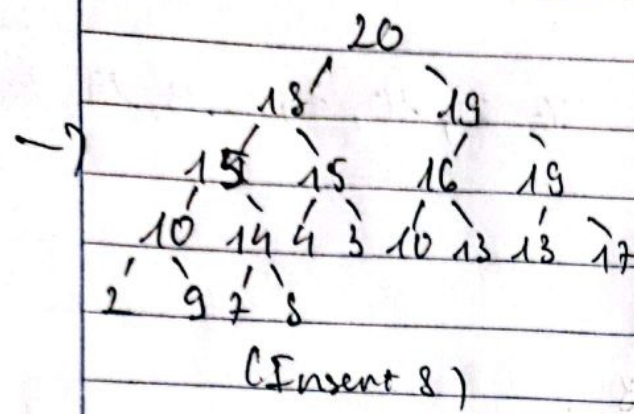 20
18 19
15 15 16 19
10 14 4 3 10 13 13 17
2 9 7 8
(Insert 8)